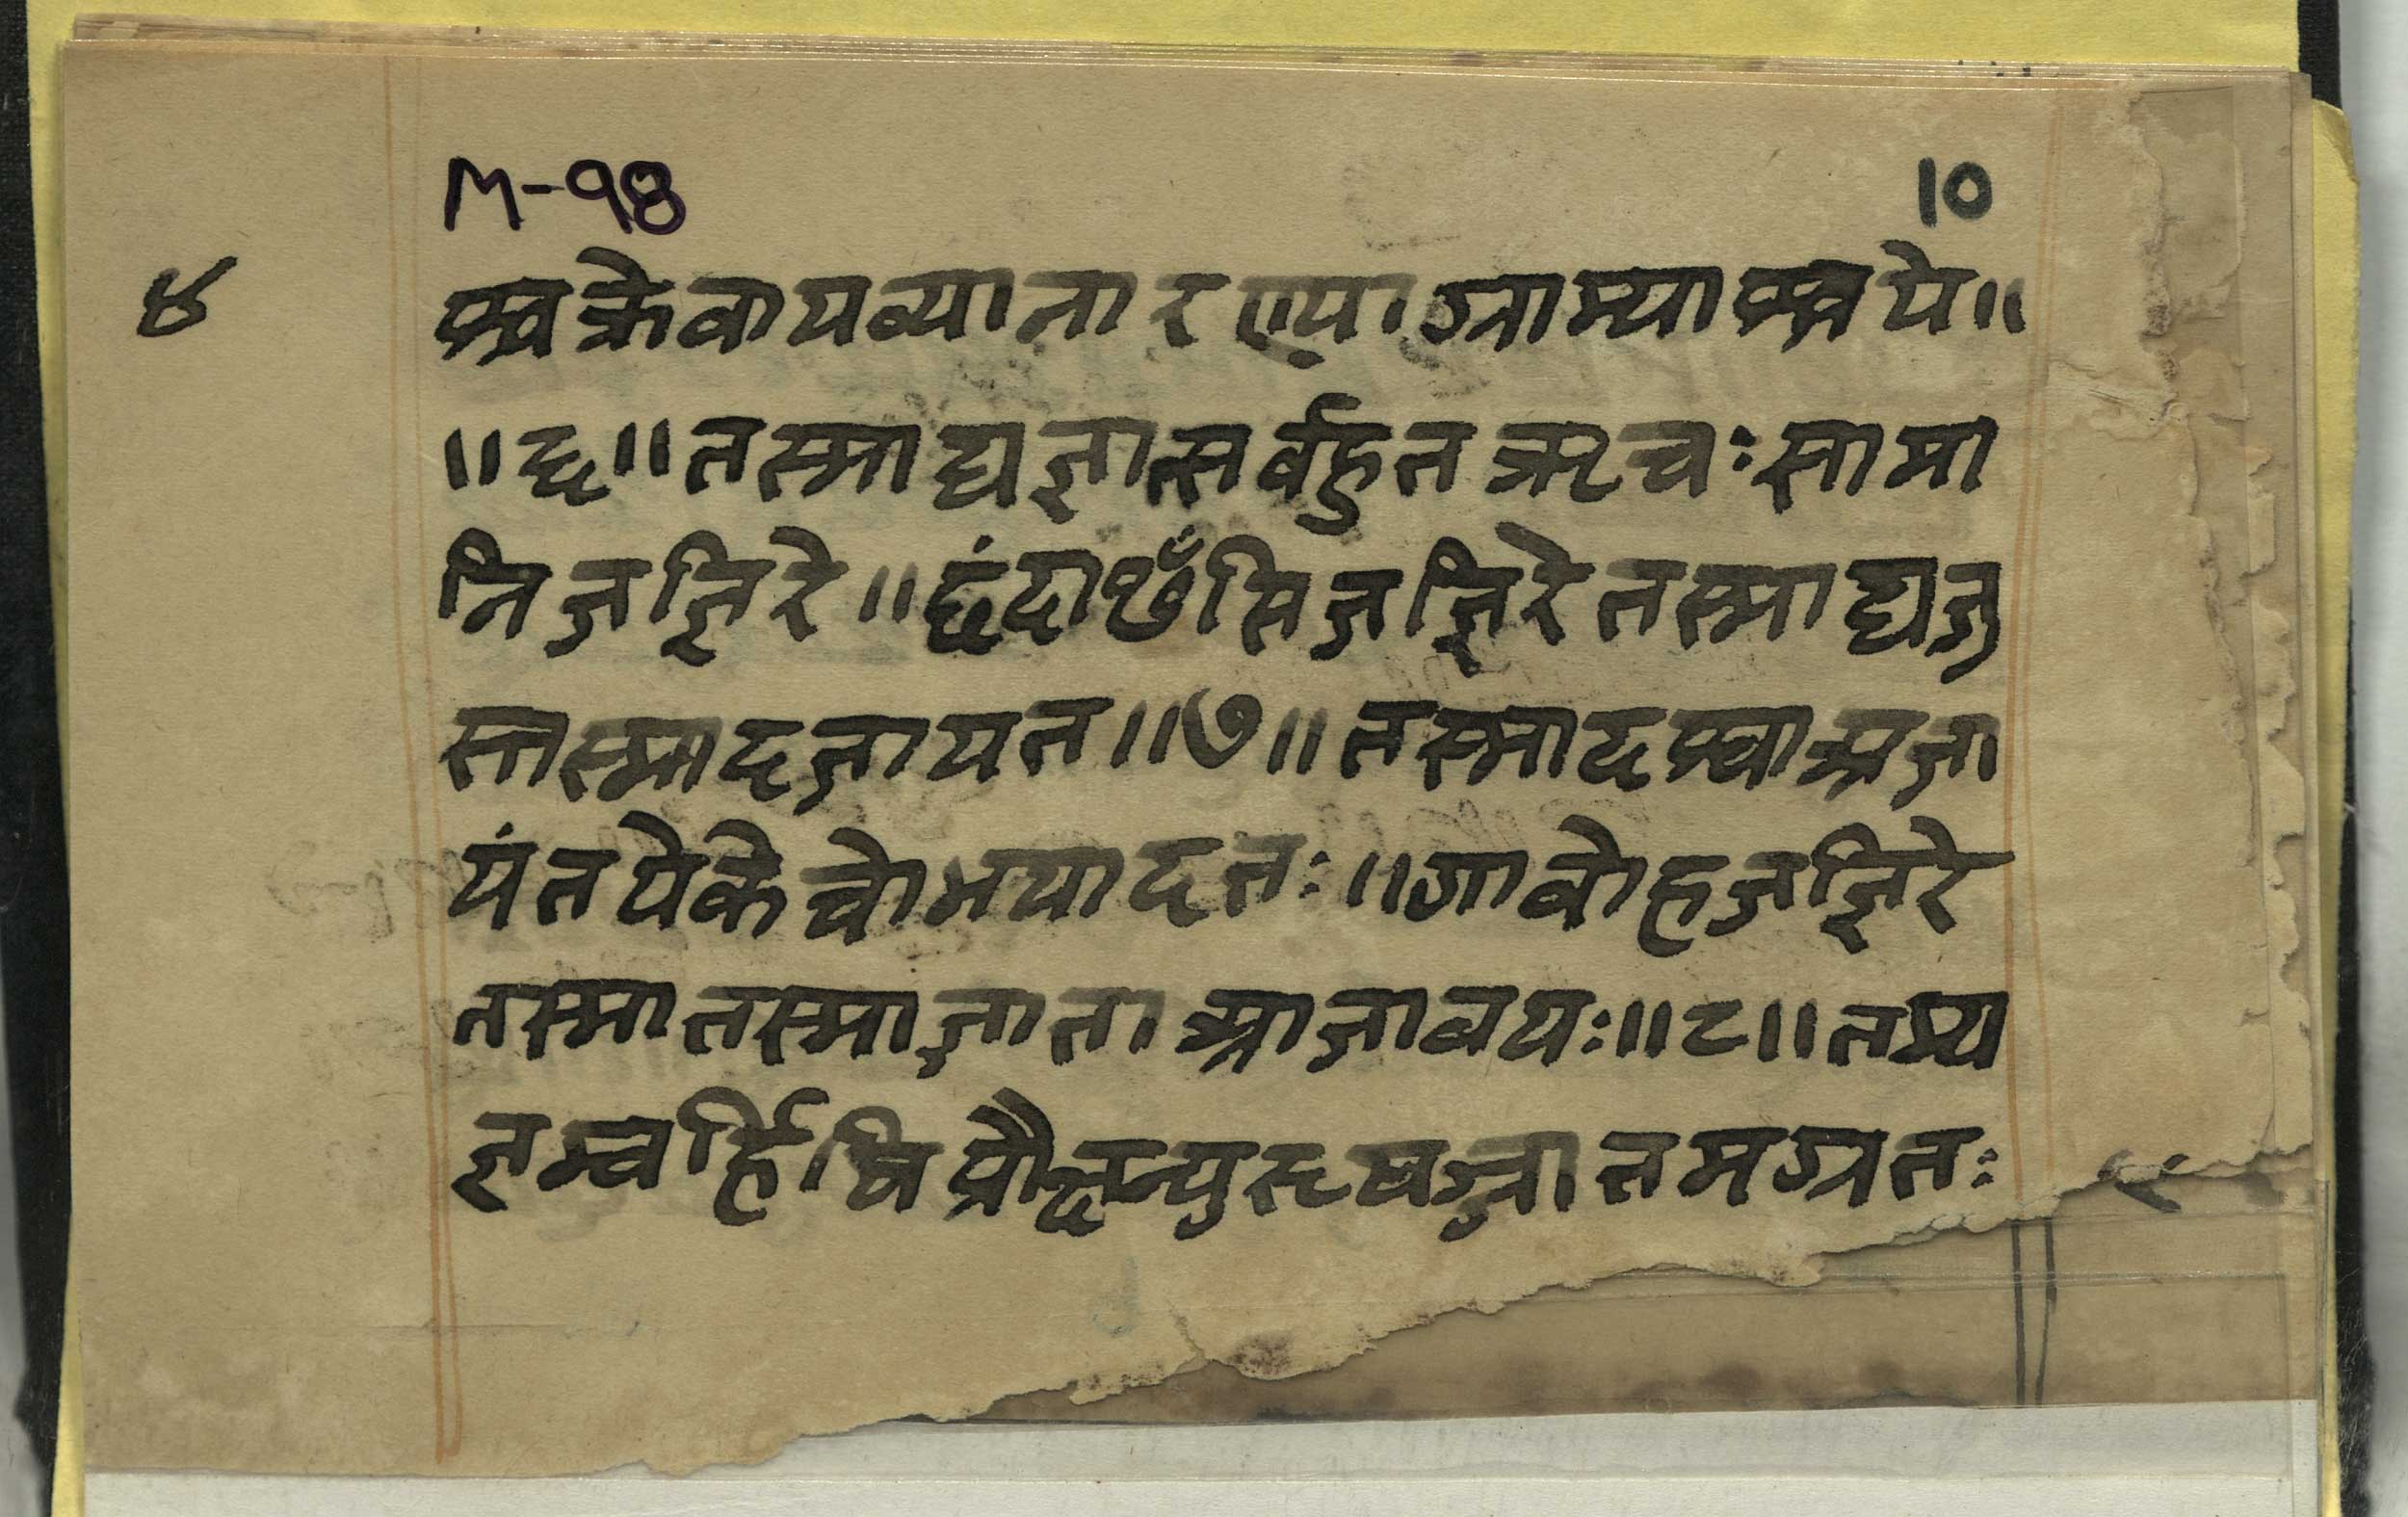 M-98 10
४
श्चक्रेवायव्यानारण्याग्राम्याश्चये॥
॥६॥तस्माद्यज्ञात्सर्वहुतऋचःसामा
निजज्ञिरे॥छंदाᳪसिजज्ञिरेतस्माद्यजु
स्तस्मादजायत॥७॥तस्मादश्वाअजा
यंतयेकेचोभयादतः॥गावोहजज्ञिरे
तस्मातस्माज्जाताअजावयः॥८॥तम्य
ज्ञम्बर्हिषिप्रौक्षन्पुरूषञ्जातमग्रतः